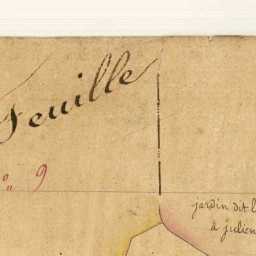 Feuille
9
jardin dit l
à julien